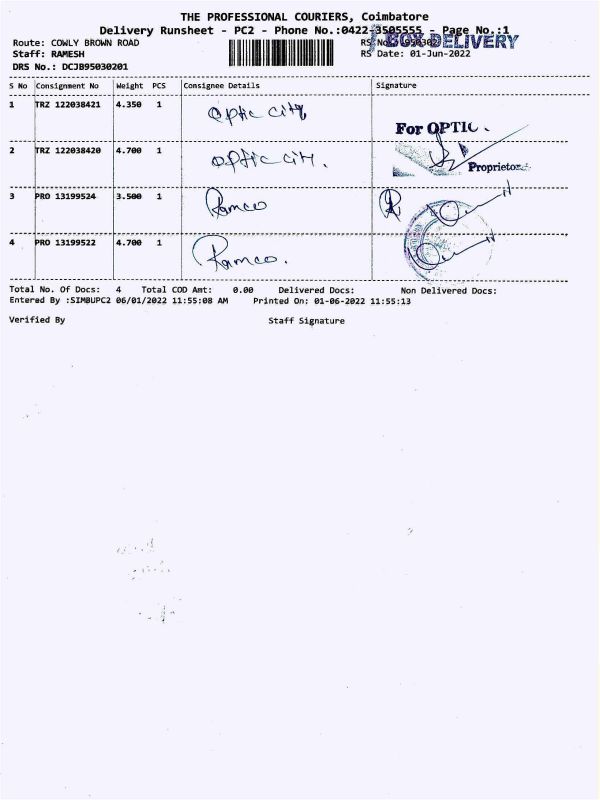 THE PROFESSIONAL COURIERS, Coimbatore
Delivery Runsheet - PC2 - Phone No.:0422-3505555 - Page No.:1
Route: COWLY BROWN ROAD
BOX DELIVERY
Staff: RAMESH
RS Date: 01-Jun-2022
DRS No.: DCJB95030201
S No Consignment No Weight PCS Consignee Details Signature
1 TRZ 122038421 4.350 1 Optic city
For OPTIC .
2 TRZ 122038420 4.700 1 optic city.
Proprietor
3 PRO 13199524 3.500 1 Ramco
4 PRO 13199522 4.700 1 Ramco.
Total No. Of Docs: 4 Total COD Amt: 0.00 Delivered Docs: Non Delivered Docs:
Entered By :SIMBUPC2 06/01/2022 11:55:08 AM Printed On: 01-06-2022 11:55:13
Verified By Staff Signature